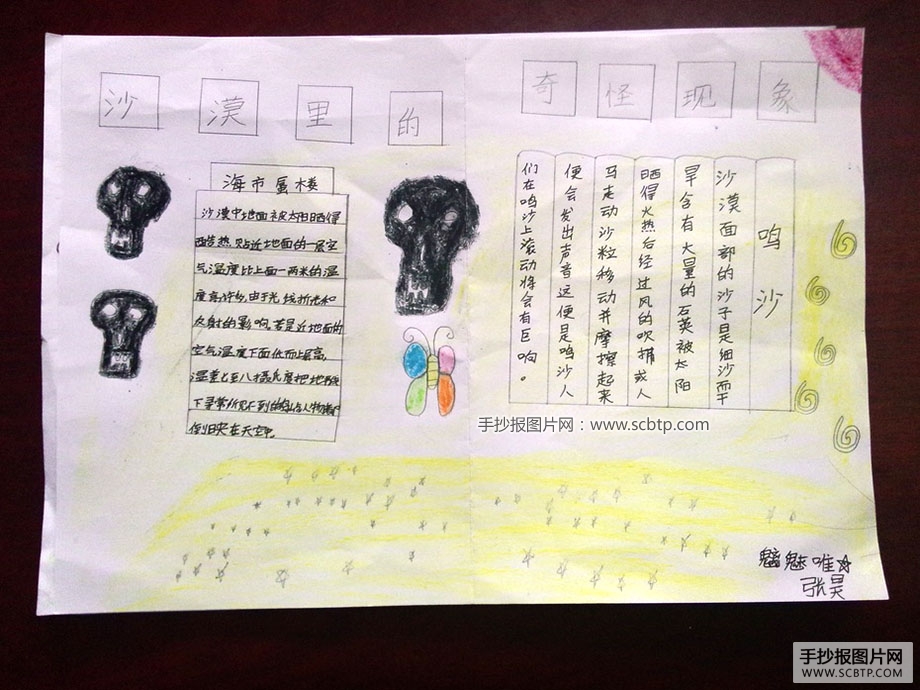 沙漠里的
奇怪现象
海市蜃楼
沙漠中地面被太阳晒得
酷热,贴近地面的一层空
气温度比上面一两米的温
度高许多,由于光线折光和
反射的影响,
空气温度下面低而上层高,
鸣沙
沙漠面部的沙子是细沙而干
旱含有大量的石英被太阳
晒得火热后经过风的吹拂或人
马走动沙粒移动并摩擦起来
便会发出声音这便是鸣沙人
们在鸣沙上滚动将会有巨响。
手抄报图片网:www.scbtp.com
魑魅唯☆
张昊
手抄报图片网
WWW.SCBTP.COM